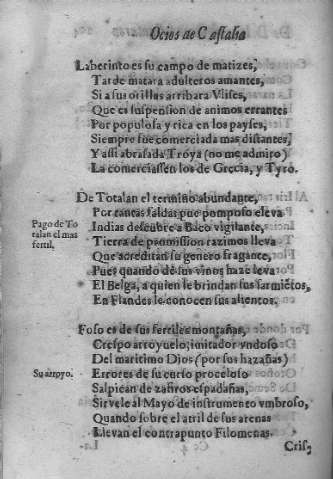 Ocios de Castalia
Laberinto es su campo de matizes,
Tarde matara adulteros amantes,
Si a sus orillas arribara Vlises,
Que es suspension de animos errantes
Por populosa y rica en los payses,
Siempre fue comerciada mas distantes,
Y assi abrasada Troya (no me admiro)
La comerciassen los de Grecia, y Tyro.
De Totalan el termino abundante,
Por tantas faldas que pomposo eleva
Pago de To
talan el mas
fertil.
Indias descubre a Baco vigilante,
Tierra de promission razimos lleva
Que acreditan su genero fragante,
Pues quando de sus vinos haze leva
El Belga, a quien le brindan sus sarmiẽtos,
En Flandes le conocen sus alientos.
Foso es de sus fertiles montañas,
Crespo arroyuelo, imitador vndoso
Del maritimo Dios (por sus hazañas)
Su arroyo.
Errores de su curso proceloso
Salpican de zafiros espadañas,
Sirvele al Mayo de instrumento vmbroso,
Quando sobre el atril de sus arenas
Llevan el contrapunto Filomenas.
Cris,